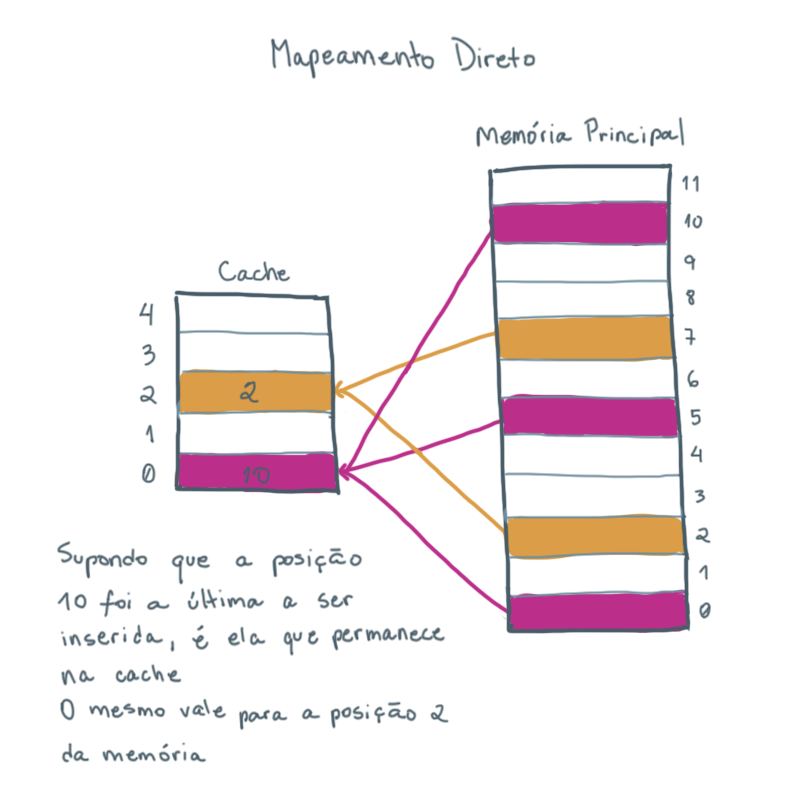 Mapeamento Direto
Memória Principal
11
10
9
8
7
6
5
4
3
2
1
0
Cache
4
3
2
1
0
2
10
Supondo que a posição
10 foi a última a ser
inserida, é ela que permanece
na cache
O mesmo vale para a posição 2
da memória